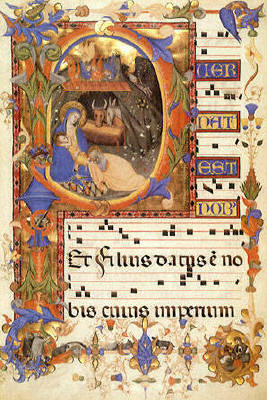 PUER
NAT
EST
NOB
Et filius datus ē no
bis cuius imperium